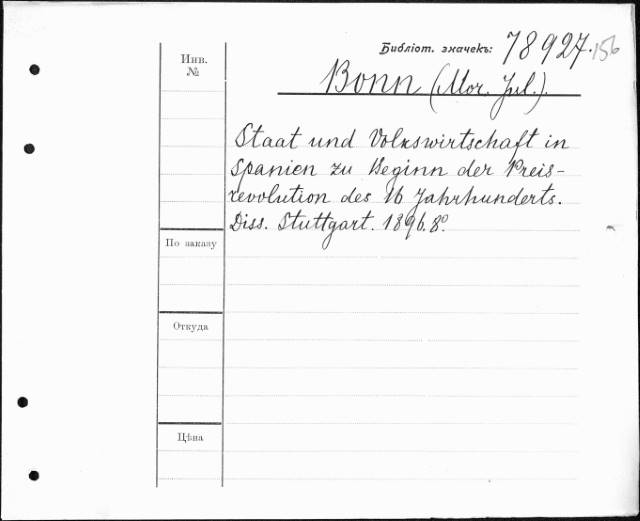 Библіот. значекъ: 78927.156
Инв.
№
Bonn (Mor. Jul.).
Staat und Volkswirtschaft in
Spanien zu Beginn der Preis-
revolution des 16 Jahrhunderts.
Diss. Stuttgart. 1896. 8º.
По заказу
Откуда
Цѣна